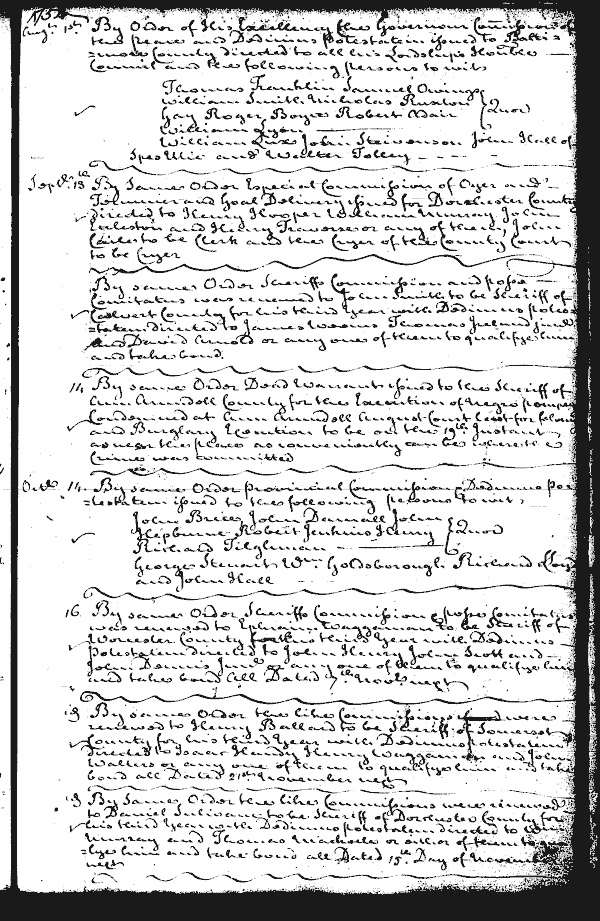 Augt. 1st By Order of His Excellency the Governor Commission of
the peace and Dedimus Potestatem issued to Balti-
=more County directed to all his Lordships Honble
Council and the following persons to wit,
Thomas Franklin Samuel Owings
William Smith Nicholas Ruxton
Gay Roger Boyce Robert Adair Quor
William
William John Stevenson John Hall of
Spes Utie and Walter Tolley
Septr. 13th By Same Order Especial Commission of Oyer and
Terminer and Goal Delivery issued for Dorchester County
directed to Henry Hooper William Murray John
Eccleston and Henry Traverse or any of them, John
Caile to be Clerk and the Cryer of the County Court
to be Cryer
By same Order Sheriffs Commission and posse
Comitatus was renewed to John Smith to be Sheriff of
Calvert County for his third Year with Dedimus potes-
=tatem directed to James Weems Thomas Ireland junr.
and David Arnold or any one of them to qualifye him
and take bond.
14 By same Order Dead Warrant issued to the Sheriff of
Ann Arundell County for the Execution of Negro Pompey
Condemned at Ann Arundell August Court last for felony
and Burglary Execution to be on the 19th Instant
as near the place as conveniently can be where the
Crime was committed
Octo. 14 By same Order Provincial Commission Dedimus Po-
=testatem issued to the following persons to wit,
John Brice John Darnall John
Hepburne Robert Jenkins Henry Quor
Richard Tilghman
George Steuart Wm. Goldsborough Richard
and John Hall
16 By same Order Sheriffs Commission & posse Comitatus
was renewed to Ephraim Waggaman to be Sheriff of
Worcester County for his third Year with Dedimus
Potestatem directed to John Henry John Scott and
John Dennis Junr. or any one of them to qualifye him
and take bond all Dated 7th Novr. next
By same Order the like Commissions were
renewed to Henry Ballard to be Sheriff of Somerset
County for his third Year with Dedimus potestatem
directed to Isaac Handy Henry Waggaman and John
Walters or any one of them to qualifye him and take
bond all Dated 21st November next
By Same Order the like Commissions were renewed
to Daniel Sulivane to be Sheriff of Dorchester County for
his third Year with Dedimus potestatem directed to
Murray and Thomas or either of them to
=lifye him and take bond all Dated 15th Day of November
next